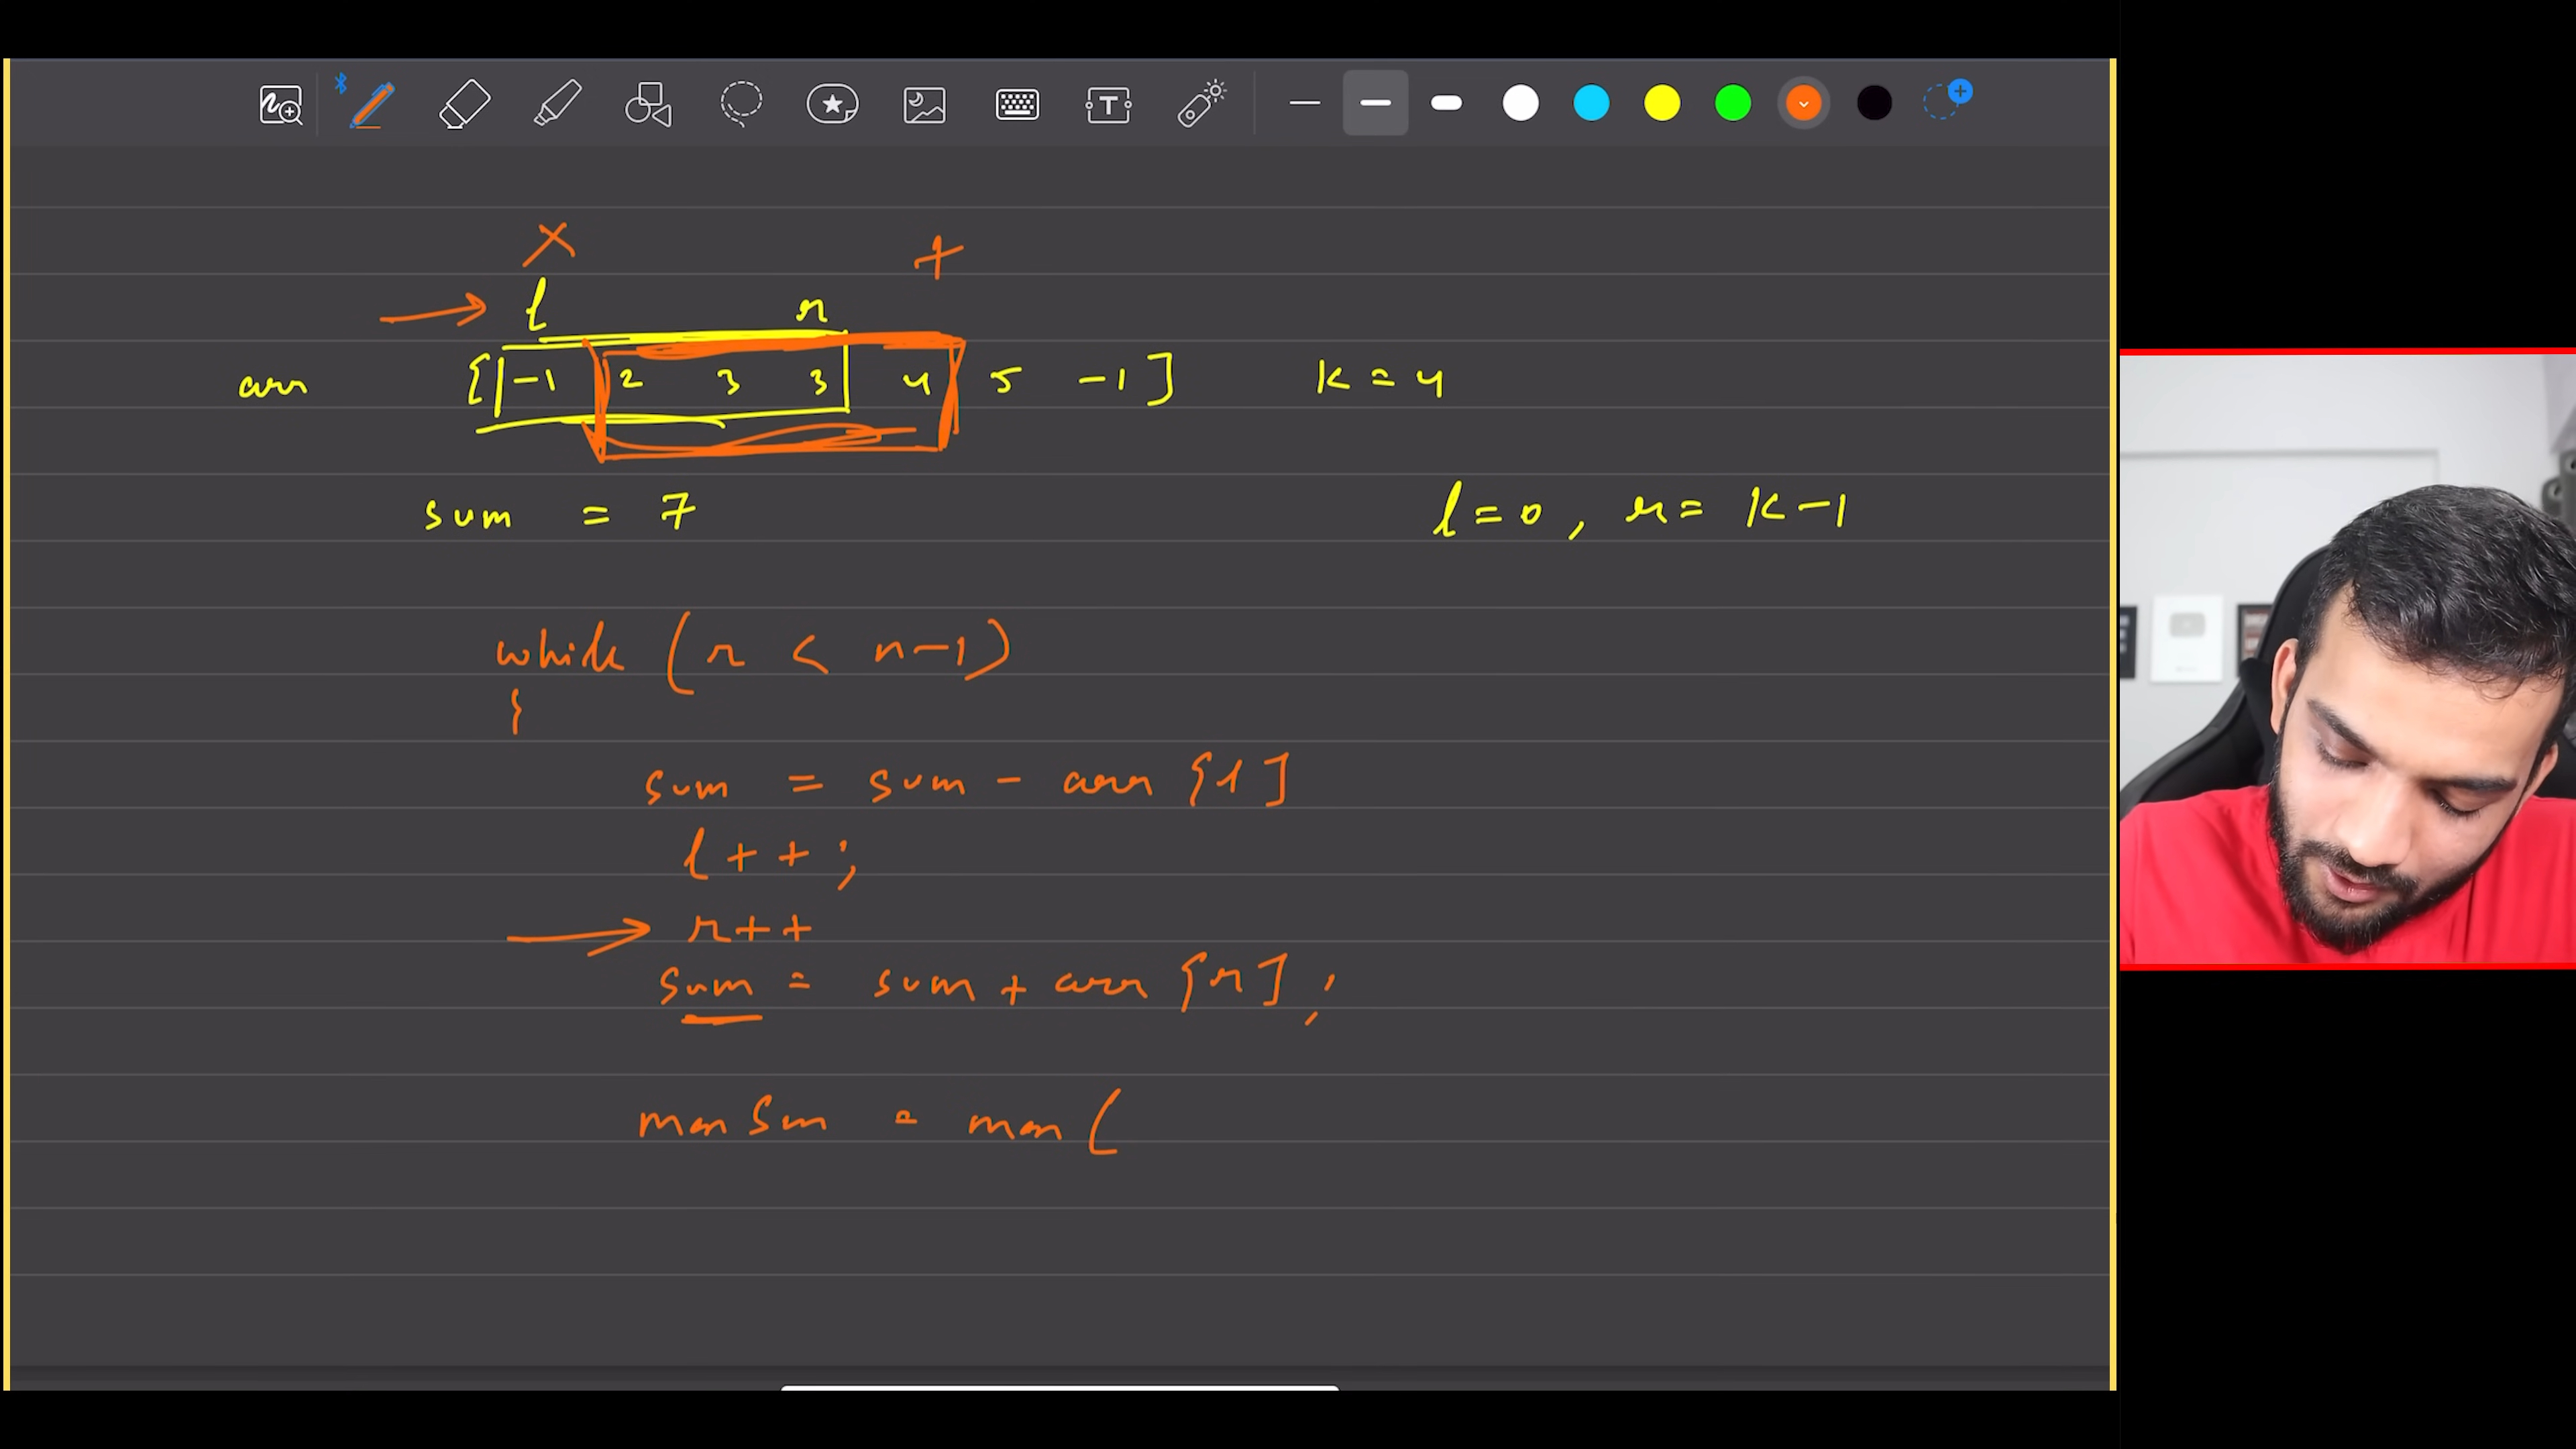 l r
arr [ -1 2 3 3 4 5 -1 ] k = 4
sum = 7 l = 0, r = k-1
while ( r < n-1 )
{
sum = sum - arr [l]
l++;
r++
sum = sum + arr [r];
maxSum = max (